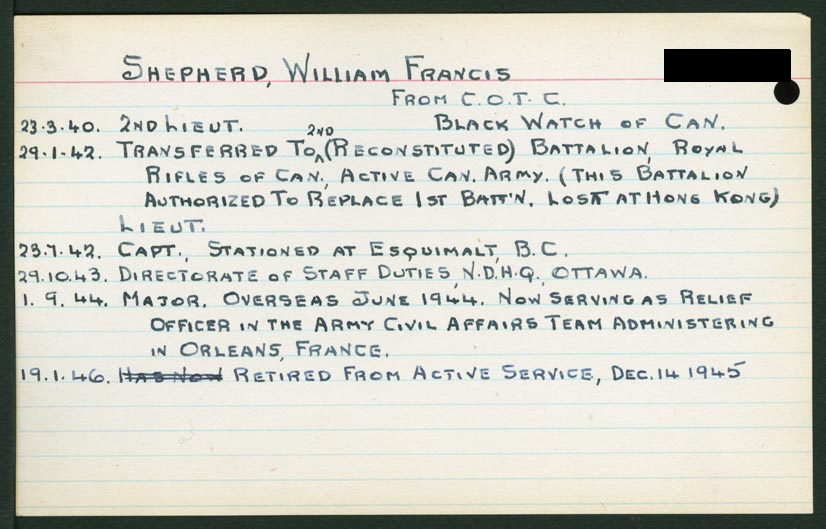 SHEPHERD, WILLIAM FRANCIS
FROM C.O.T.C.
23.3.40. 2ND LIEUT. BLACK WATCH OF CAN.
29.1.42. TRANSFERRED TO 2ND (RECONSTITUTED) BATTALION, ROYAL
RIFLES OF CAN., ACTIVE CAN. ARMY. (THIS BATTALION
AUTHORIZED TO REPLACE 1ST BATT'N. LOST AT HONG KONG)
LIEUT.
23.7.42. CAPT., STATIONED AT ESQUIMALT, B.C.
29.10.43. DIRECTORATE OF STAFF DUTIES, N.D.H.Q., OTTAWA.
1. 9. 44. MAJOR. OVERSEAS JUNE 1944. NOW SERVING AS RELIEF
OFFICER IN THE ARMY CIVIL AFFAIRS TEAM ADMINISTERING
IN ORLEANS, FRANCE.
19.1.46. HAS NOW RETIRED FROM ACTIVE SERVICE, DEC. 14 1945